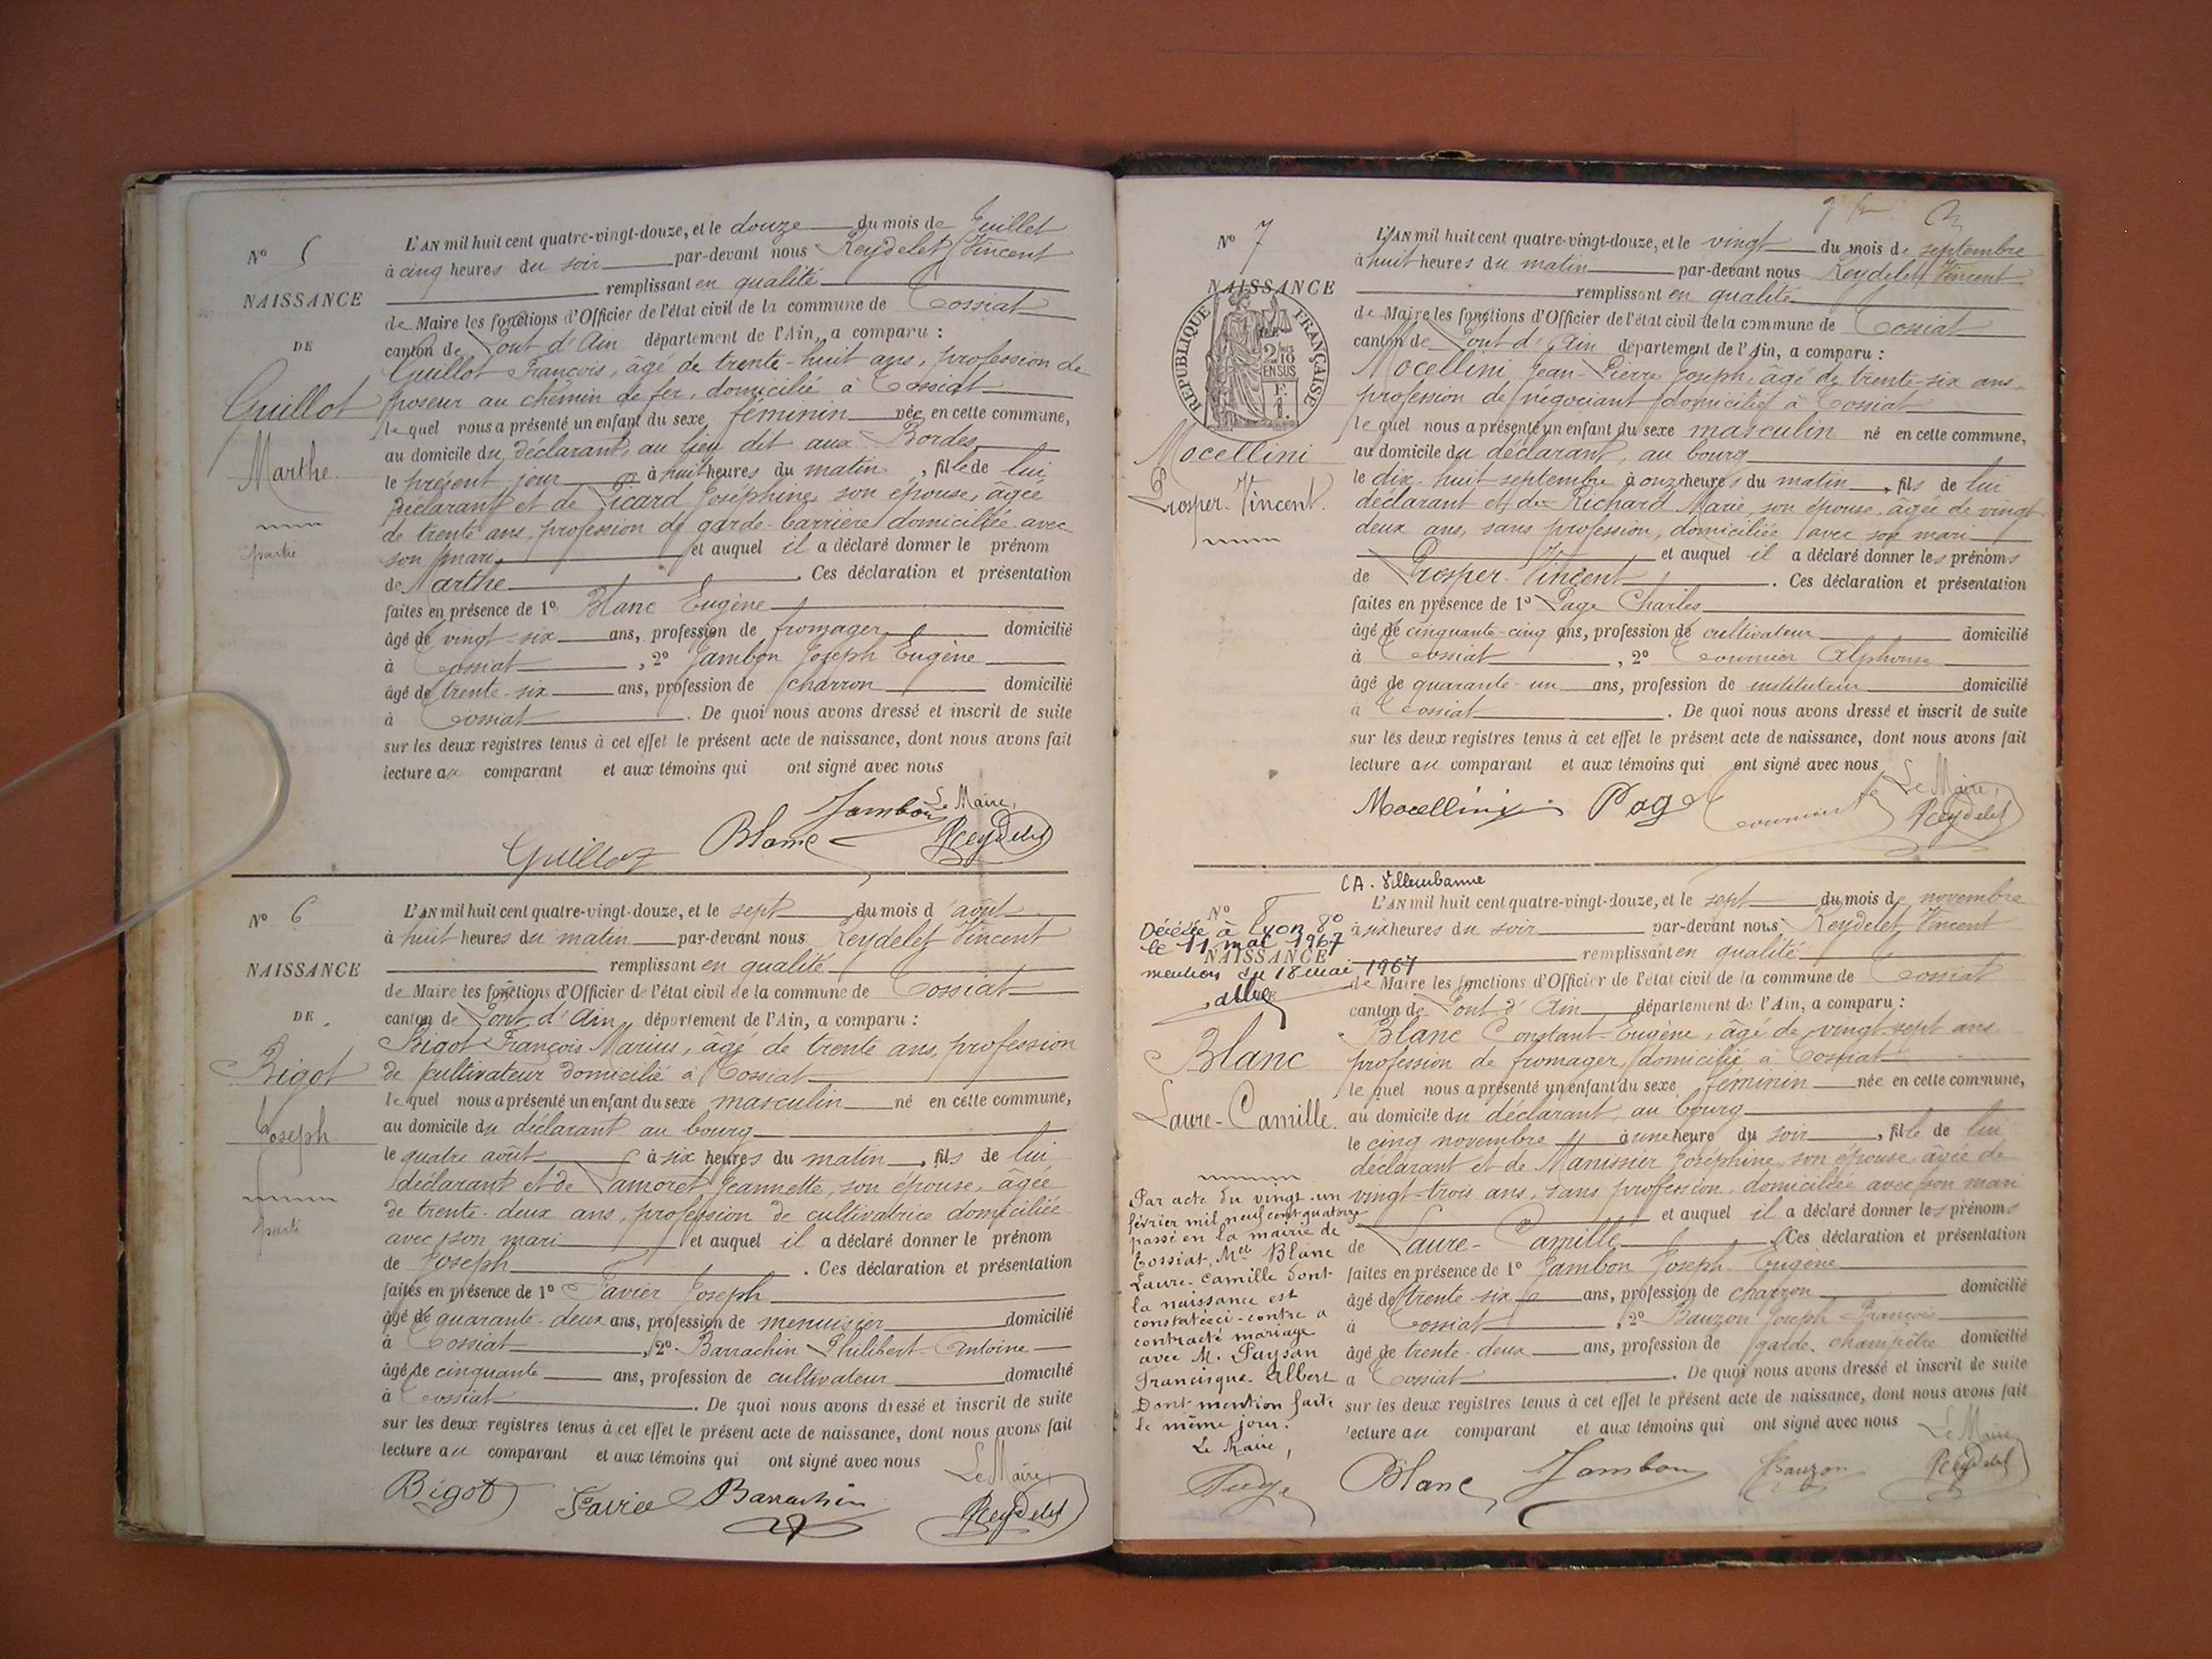 N° 5
NAISSANCE
DE
Guillot
Marthe.
L'AN mil huit cent quatre-vingt-douze, et le douze du mois de Juillet
à cinq heures du soir par-devant nous Reydelet Vincent
remplissant en qualité
de Maire les fonctions d'Officier de l'état civil de la commune de Tossiat
canton de Pont d'Ain département de l'Ain, a comparu :
Guillot François, âgé de trente-huit ans, profession de
poseur au chemin de fer, domicilié à Tossiat
le quel nous a présenté un enfant du sexe féminin née en cette commune,
au domicile du déclarant, au lieu dit aux Bordes
le présent jour à huit heures du matin, fille de lui
déclarant et de Picard Joséphine, son épouse, âgée
de trente ans, profession de garde-barrière domiciliée avec
son mari, et auquel il a déclaré donner le prénom
de Marthe. Ces déclaration et présentation
faites en présence de 1° Blanc Eugène
âgé de vingt-six ans, profession de fromager domicilié
à Tossiat, 2° Jambon Joseph Eugène
âgé de trente-six ans, profession de charron domicilié
à Tossiat. De quoi nous avons dressé et inscrit de suite
sur les deux registres tenus à cet effet le présent acte de naissance, dont nous avons fait
lecture au comparant et aux témoins qui ont signé avec nous
Le Maire,
Guillot Blanc Jambon Reydelet
N° 6
NAISSANCE
DE
Bigot
Joseph.
L'AN mil huit cent quatre-vingt-douze, et le sept du mois d'août
à huit heures du matin par-devant nous Reydelet Vincent
remplissant en qualité
de Maire les fonctions d'Officier de l'état civil de la commune de Tossiat
canton de Pont d'Ain, département de l'Ain, a comparu :
Bigot François Marius, âgé de trente ans, profession
de cultivateur domicilié à Tossiat
le quel nous a présenté un enfant du sexe masculin né en cette commune,
au domicile du déclarant au bourg
le quatre août à six heures du matin, fils de lui
déclarant et de Lamoret Jeannette, son épouse, âgée
de trente-deux ans, profession de cultivatrice domiciliée
avec son mari et auquel il a déclaré donner le prénom
de Joseph. Ces déclaration et présentation
faites en présence de 1° Favier Joseph
âgé de quarante-deux ans, profession de menuisier domicilié
à Tossiat, 2° Barrachin Philibert Antoine
âgé de cinquante ans, profession de cultivateur domicilié
à Tossiat. De quoi nous avons dressé et inscrit de suite
sur les deux registres tenus à cet effet le présent acte de naissance, dont nous avons fait
lecture au comparant et aux témoins qui ont signé avec nous
Le Maire
Bigot Favier Barrachin Reydelet
N° 7
NAISSANCE
DE
RÉPUBLIQUE FRANÇAISE
2/10 EN SUS
Mocellini
Prosper-Vincent.
L'AN mil huit cent quatre-vingt-douze, et le vingt du mois de septembre
à huit heures du matin par-devant nous Reydelet Vincent
remplissant en qualité
de Maire les fonctions d'Officier de l'état civil de la commune de Tossiat
canton de Pont d'Ain département de l'Ain, a comparu :
Mocellini Jean-Pierre Joseph, âgé de trente-six ans,
profession de négociant domicilié à Tossiat
le quel nous a présenté un enfant du sexe masculin né en cette commune,
au domicile du déclarant, au bourg
le dix-huit septembre à onze heures du matin, fils de lui
déclarant et de Richard Marie, son épouse, âgée de vingt-
deux ans, sans profession, domiciliée avec son mari
et auquel il a déclaré donner les prénoms
de Prosper-Vincent. Ces déclaration et présentation
faites en présence de 1° Page Charles
âgé de cinquante-cinq ans, profession de cultivateur domicilié
à Tossiat, 2° Cournier Alphonse
âgé de quarante-un ans, profession de instituteur domicilié
à Tossiat. De quoi nous avons dressé et inscrit de suite
sur les deux registres tenus à cet effet le présent acte de naissance, dont nous avons fait
lecture au comparant et aux témoins qui ont signé avec nous
Le Maire,
Mocellini Page Reydelet
CA. Villeurbanne
N° 8
Décédée à Lyon 8°
le 11 mai 1967
NAISSANCE
mention du 18 mai 1967
Blanc
Laure-Camille.
Par acte du vingt-un
février mil neuf cent quatorze
passé en la mairie de
Tossiat, Mlle Blanc
Laure-Camille dont
la naissance est
constatée ci-contre a
contracté mariage
avec M. Paysan
Francisque-Albert
Dont mention faite
le même jour.
Le Maire,
L'AN mil huit cent quatre-vingt-douze, et le sept du mois de novembre
à six heures du soir par-devant nous Reydelet Vincent
remplissant en qualité
de Maire les fonctions d'Officier de l'état civil de la commune de Tossiat
canton de Pont d'Ain département de l'Ain, a comparu :
Blanc Constant-Eugène, âgé de vingt-sept ans
profession de fromager, domicilié à Tossiat
le quel nous a présenté un enfant du sexe féminin née en cette commune,
au domicile du déclarant, au bourg
le cinq novembre à une heure du soir, fille de lui
déclarant et de Manissier Joséphine, son épouse, âgée de
vingt-trois ans, sans profession, domiciliée avec son mari
et auquel il a déclaré donner les prénoms
de Laure-Camille. Ces déclaration et présentation
faites en présence de 1° Jambon Joseph Eugène
âgé de trente-six ans, profession de charron domicilié
à Tossiat, 2° Bauzon Joseph François
âgé de trente-deux ans, profession de garde champêtre domicilié
à Tossiat. De quoi nous avons dressé et inscrit de suite
sur les deux registres tenus à cet effet le présent acte de naissance, dont nous avons fait
lecture au comparant et aux témoins qui ont signé avec nous
Le Maire
Blanc Jambon Bauzon Reydelet